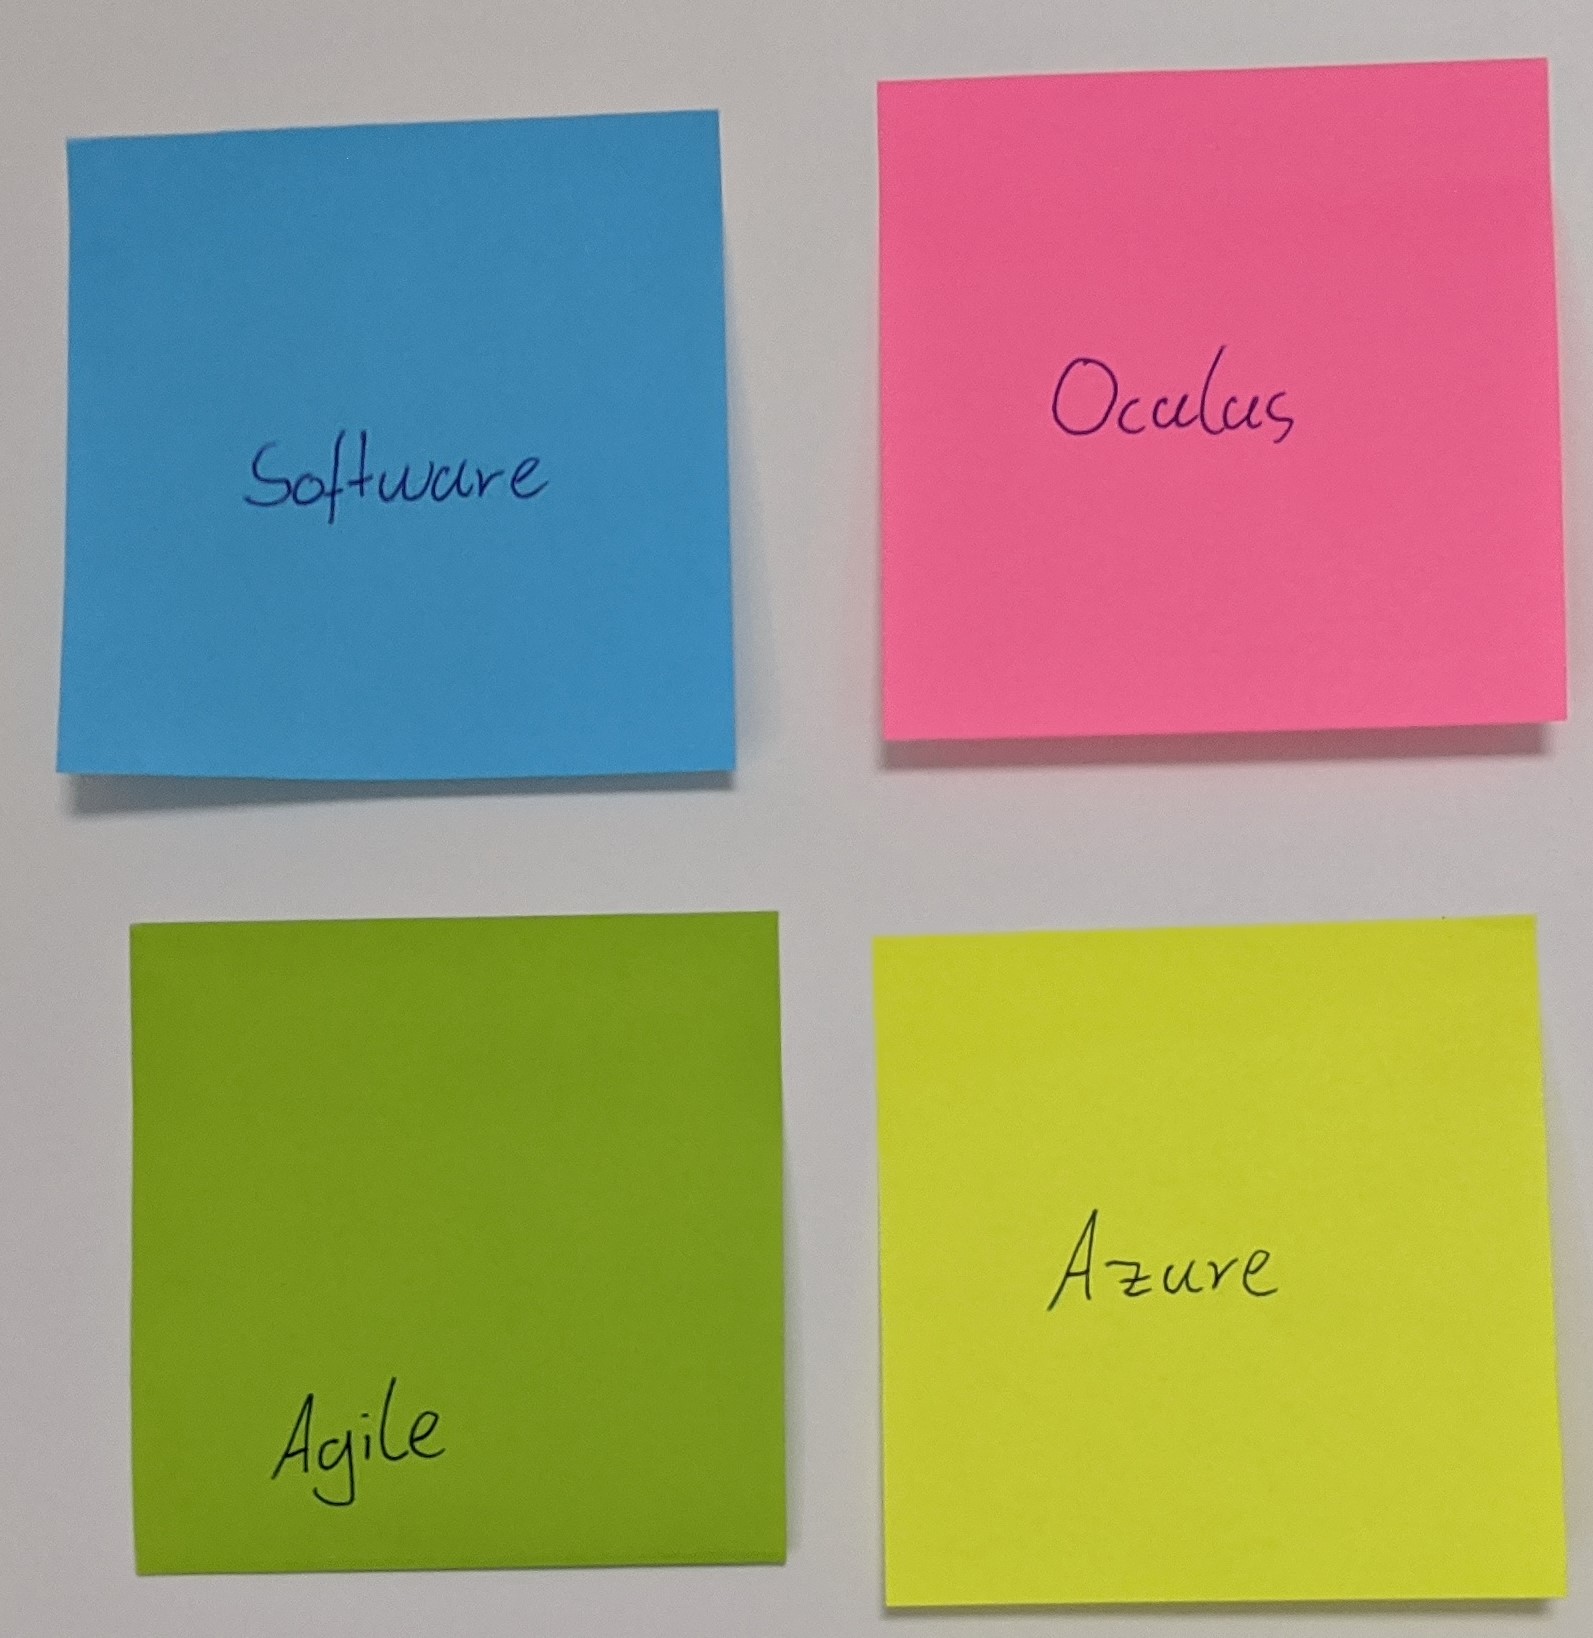 Software
Oculus
Agile
Azure